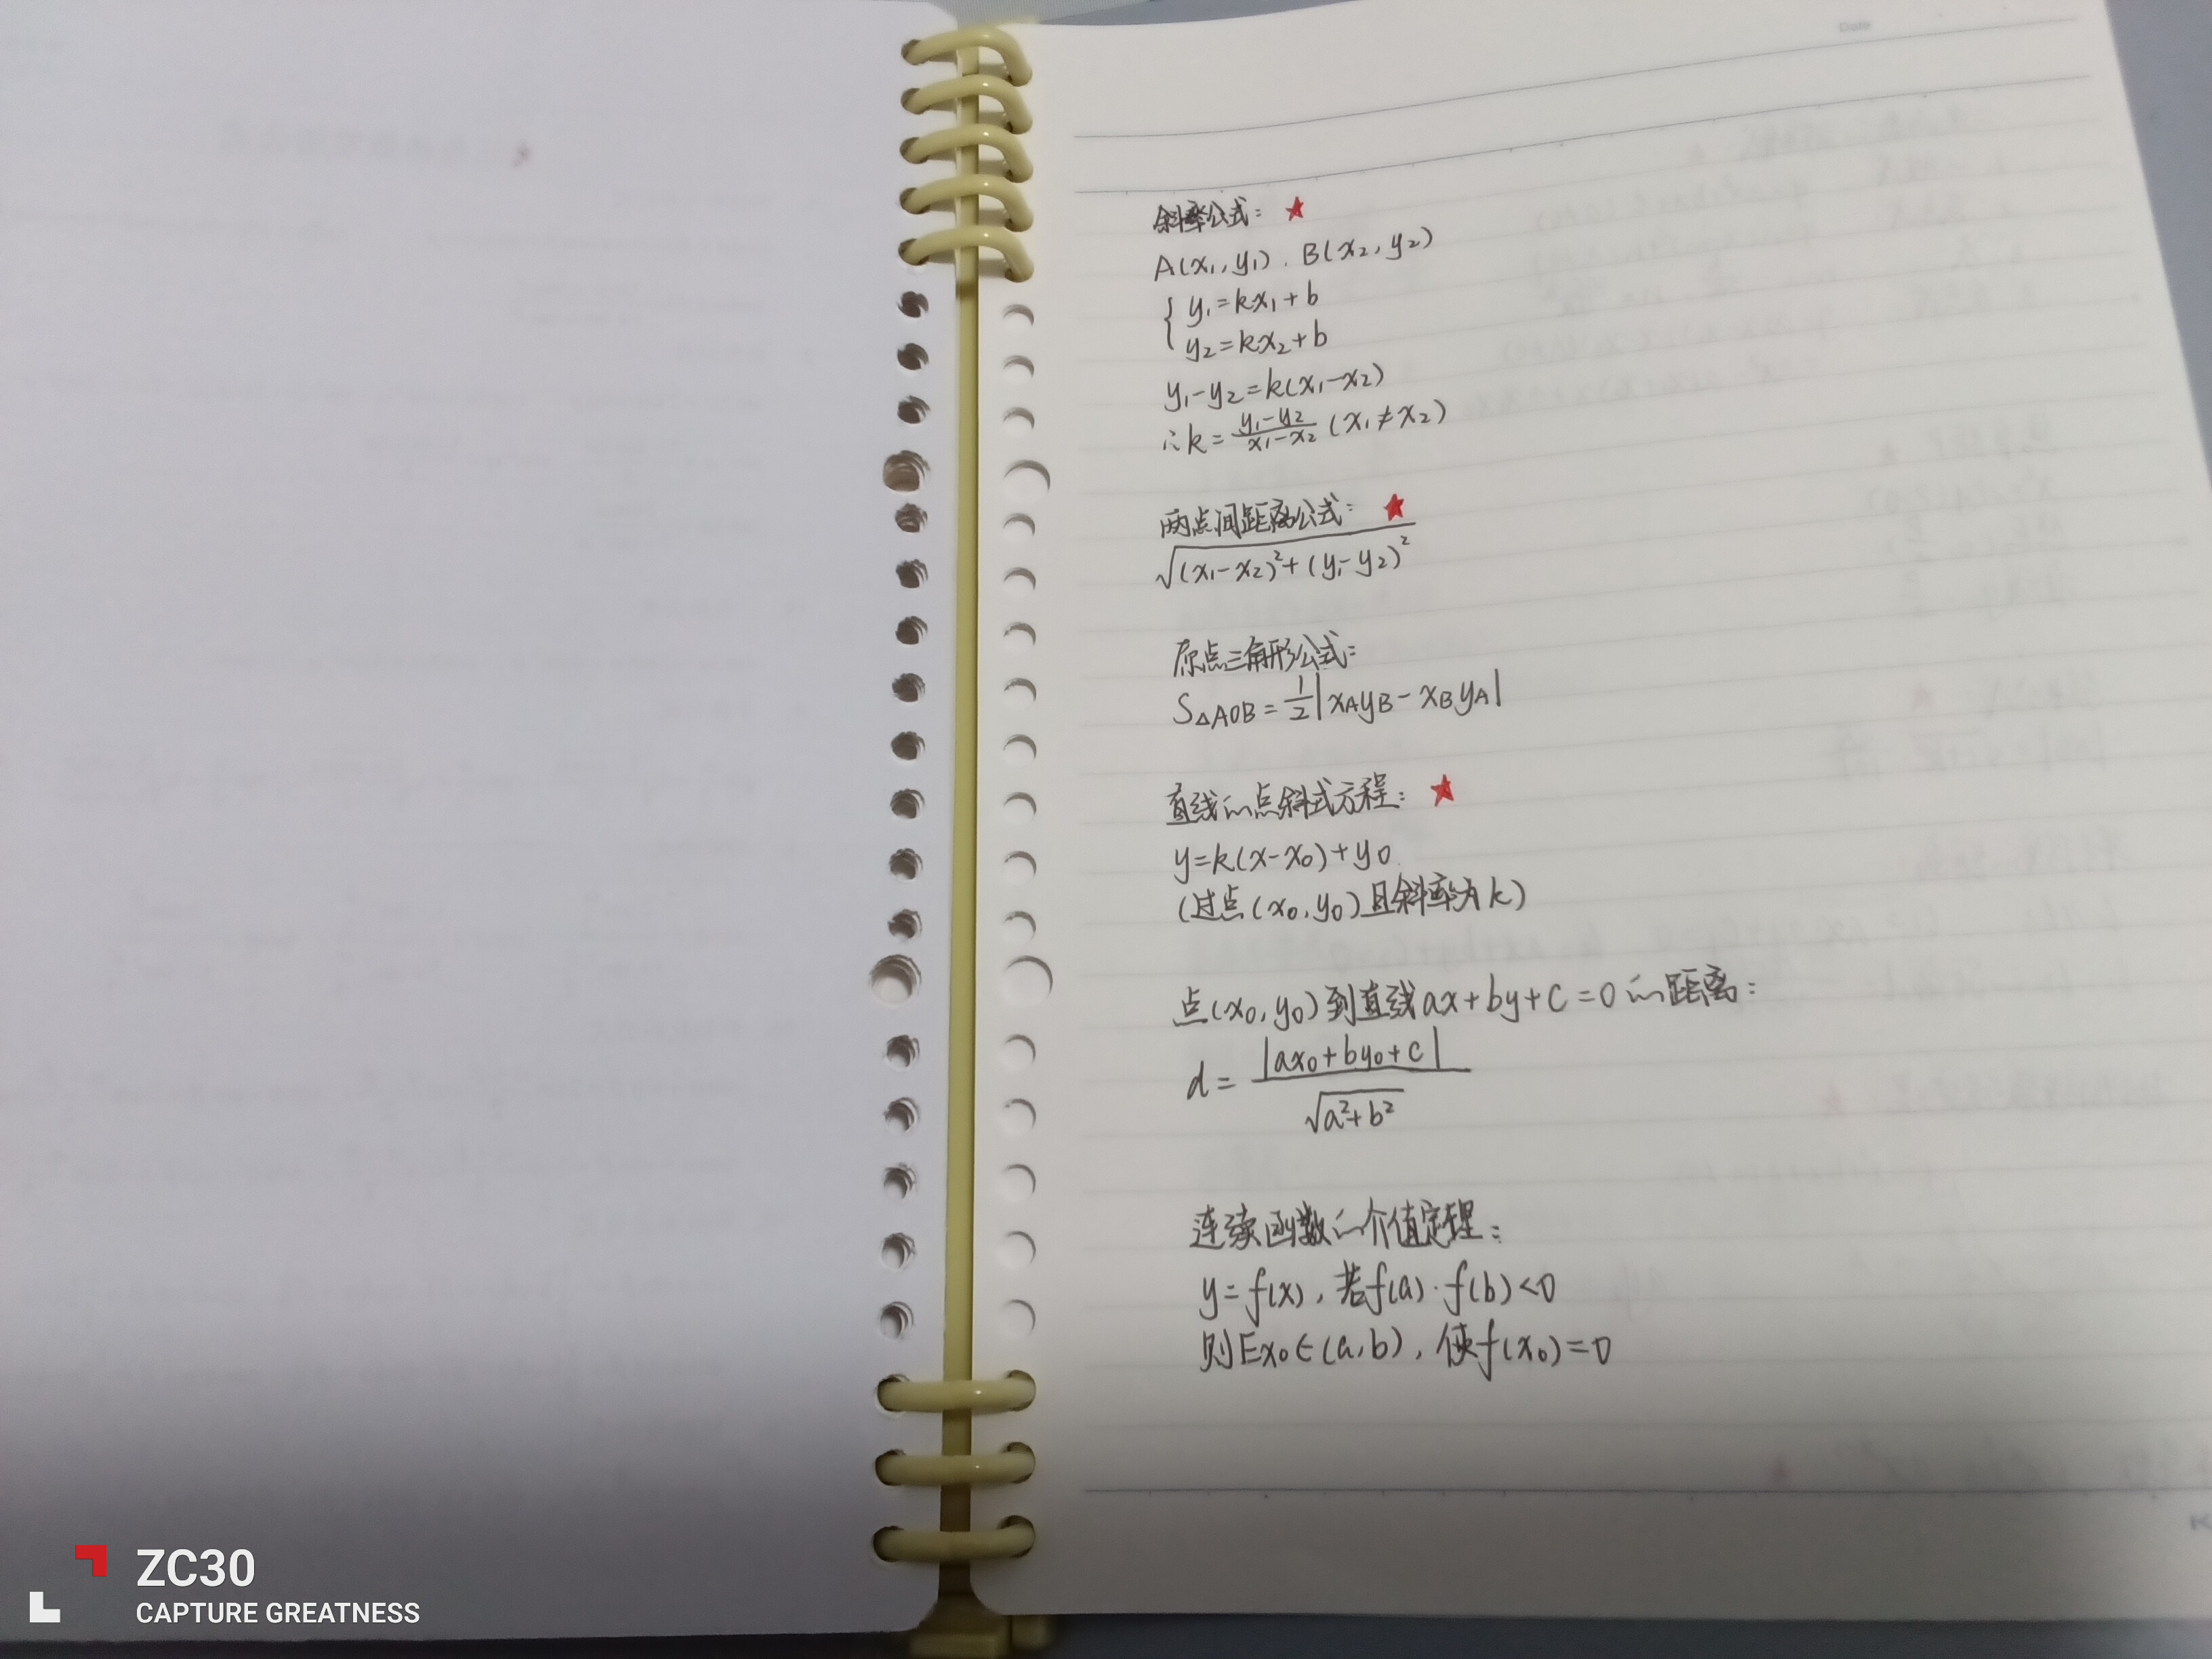 Date
斜率公式：★
A(x₁, y₁). B(x₂, y₂)
{ y₁=kx₁+b
y₂=kx₂+b
y₁-y₂=k(x₁-x₂)
∴k=\frac{y₁-y₂}{x₁-x₂}(x₁≠x₂)
两点间距离公式：★
√((x₁-x₂)²+(y₁-y₂)²)
原点三角形公式：
S△AOB=\frac{1}{2}|xAyB-xByA|
直线的点斜式方程：★
y=k(x-x₀)+y₀
(过点(x₀,y₀)且斜率为k)
点(x₀,y₀)到直线ax+by+c=0的距离：
d=\frac{|ax₀+by₀+c|}{√(a²+b²)}
连续函数的介值定理：
y=f(x)，若f(a)·f(b)<0
则∃x₀∈(a,b)，使f(x₀)=0
ZC30
CAPTURE GREATNESS